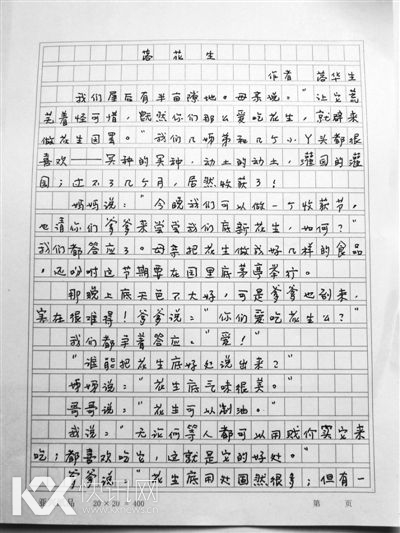 落花生
作者 落华生
我们屋后有半亩隙地。母亲说："让它荒
芜着怪可惜，既然你们那么爱吃花生，就辟来
做花生园罢。"我们几姊弟和几个小丫头都很
喜欢——买种的买种，动土的动土，灌园的灌
园；过不了几个月，居然收获了！
妈妈说："今晚我们可以做一个收获节，
也请你们爹爹来尝尝我们底新花生，如何？"
我们都答应了。母亲把花生做成好几样的食品，
还吩咐这节期要在园里底茅亭举行。
那晚上底天色不大好，可是爹爹也到来，
实在很难得！爹爹说："你们爱吃花生么？"
我们都争着答应。"爱！"
"谁能把花生底好处说出来？"
姊姊说："花生底气味很美。"
哥哥说："花生可以制油。"
我说："无论何等人都可以用贱价买它来
吃；都喜欢吃它，这就是它的好处。"
爹爹说："花生底用处固然很多；但有一
KX 快讯网
品 20×20=400
第 页